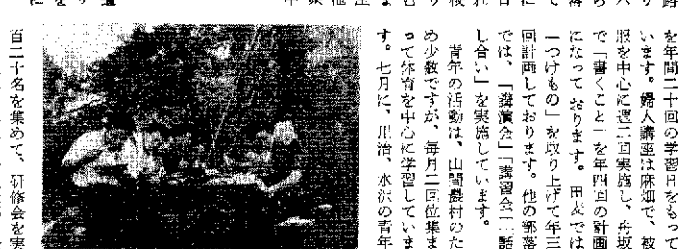 を年間二十回の学習日をもって
います。婦人講座は麻畑で、被
服を中心に週二回実施し、舟坂
で「書くこと」を年四回の計画
になって おります。田麦では
「つけもの」を取り上げて年三
回計画しております。他の部落
では、「講演会」「講習会」「話
し合い」を実施しています。
青年の活動は、山間農村のた
め少数ですが、毎月二回位集ま
って体育を中心に学習していま
す。七月に、川治、水沢の青年
百二十名を集めて、研修会を実